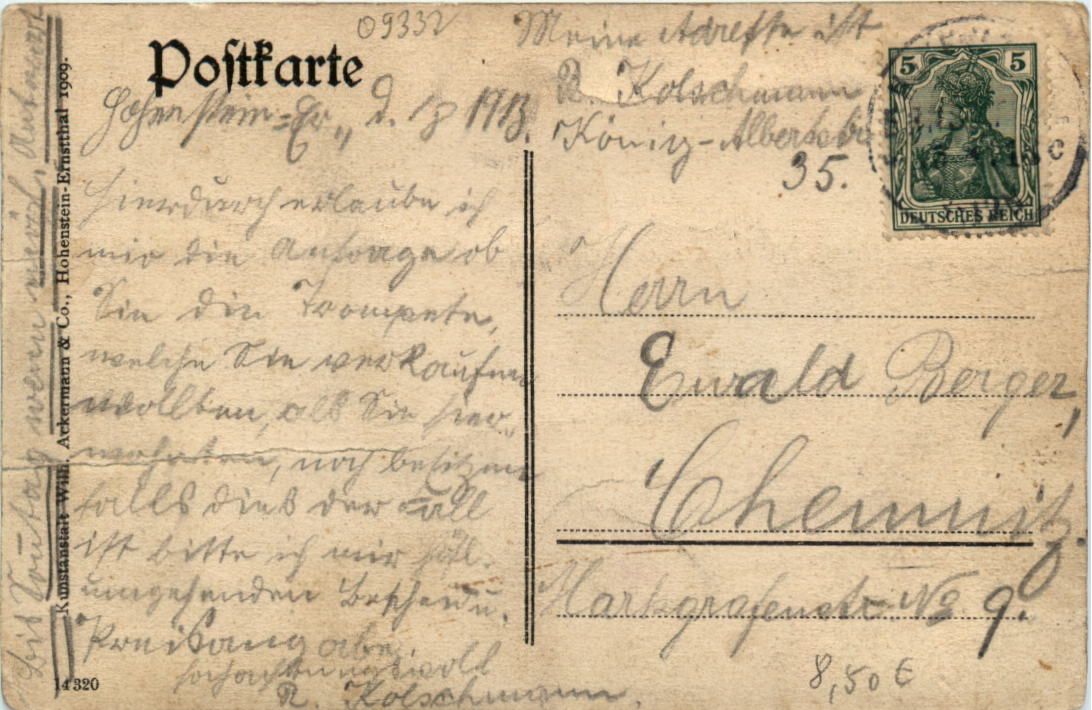 09332
Postkarte
Meine Adresse ist
R. Kolschmann
König-Albertstr.
35.
Hohenstein-Er., d. 1913.
Hierdurch erlaube ich
mir die Anfrage ob
Sie die Trompete,
welche Sie verkaufen
wollten, als Sie hier
wohnten, noch besitzen
falls dies der Fall
ist bitte ich mir höfl.
umgehenden Bescheid u.
Preisangabe
hochachtungsvoll
R. Kolschmann.
Bis Sonntag wenn mögl. Antwort
Kunstanstalt Wilh. Ackermann & Co., Hohenstein-Ernstthal 1909.
14320
5 5
DEUTSCHES REICH
C
Herrn
Ewald Berger,
Chemnitz.
Markgrafenstr. No 9.
8,50 €